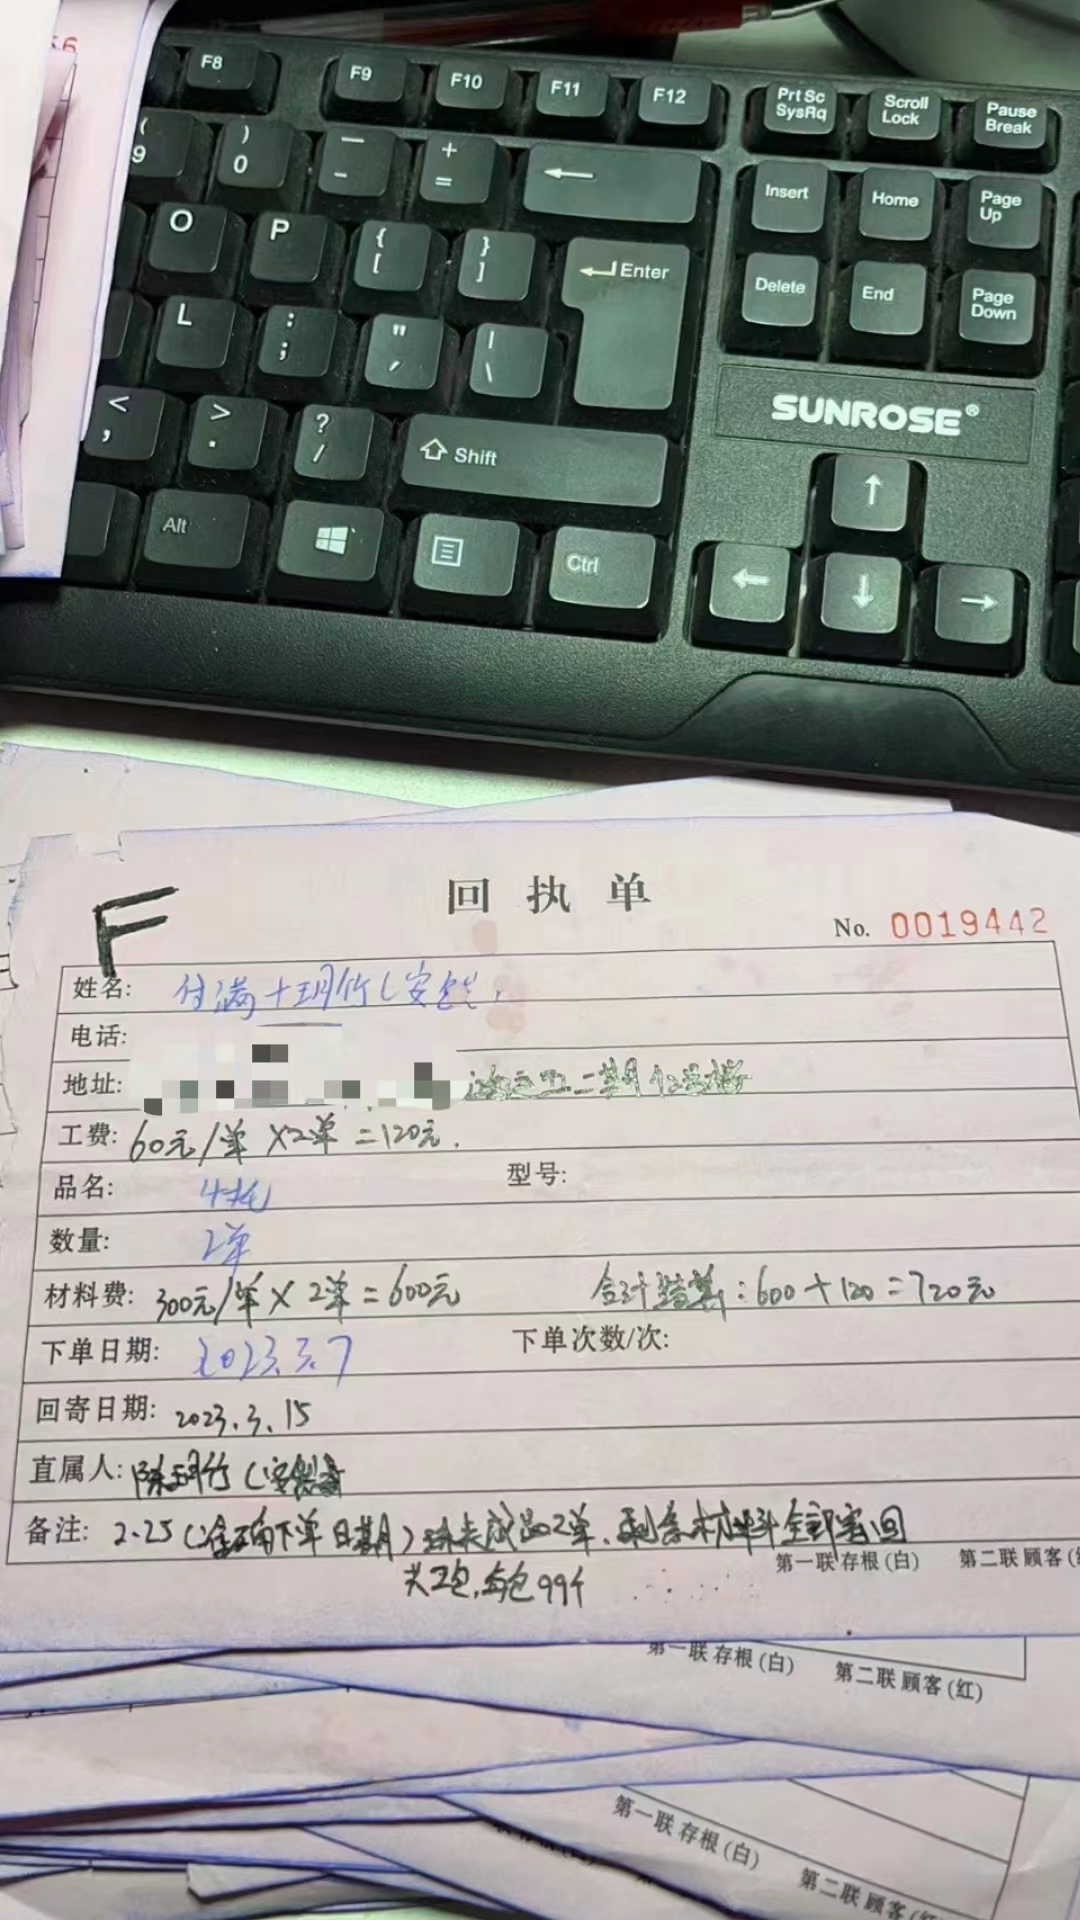 F8 F9 F10 F11 F12 Prt Sc SysRq Scroll Lock Pause Break
( 9 ) 0 — - + = ← Insert Home Page Up
O P { [ } ] Enter Delete End Page Down
L : ; " ' | \
< , > . ? / Shift
SUNROSE®
↑
Alt Ctrl ← ↓ →
回执单
F
No. 0019442
姓名: 付满十玥竹(安
电话:
地址: 二期
工费: 60元/单×2单=120元.
品名: 型号:
数量: 2单
材料费: 300元/单×2单=600元 合计结算:600+120=720元
下单日期: 2023.3.7 下单次数/次:
回寄日期: 2023.3.15
直属人: 陈玥竹(安
备注: 2.25(准确下单日期)珠夹成品2单.剩余材料全部寄回
共2包,每包99个
第一联存根(白) 第二联顾客(
第一联存根(白) 第二联顾客(红)
第一联存根(白) 第二联顾客(红